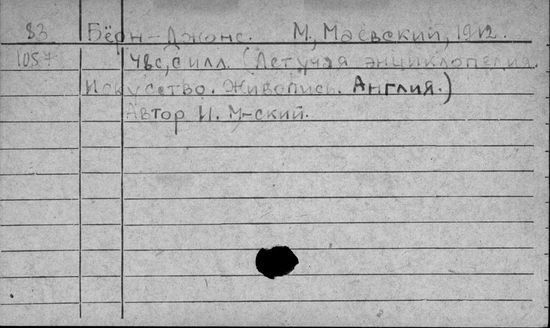 83 Бёрн-Джонс. М, Маевский, 1912.
1057 48с, с илл. (Летучая энциклопедия.
Искусство. Живопись. Англия.)
Автор И. М-ский.